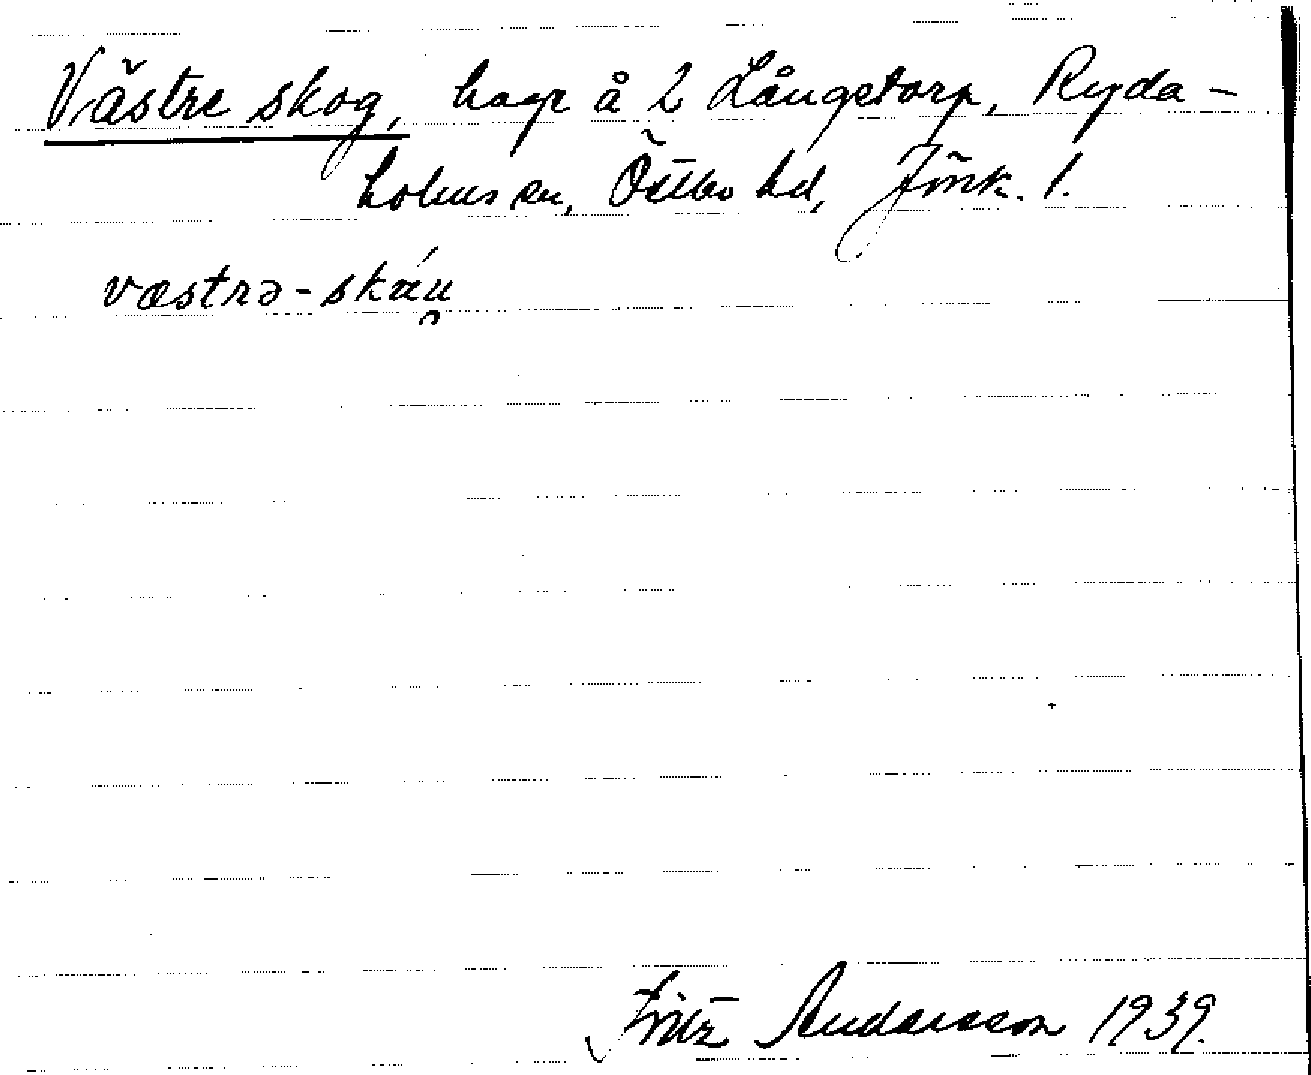 Västre skog, hage å 2 Långetorp, Ryda-
holms sn, Östbo hd, Jönk. l.
væstrə-skáu̯
Fritz Andersson 1939.